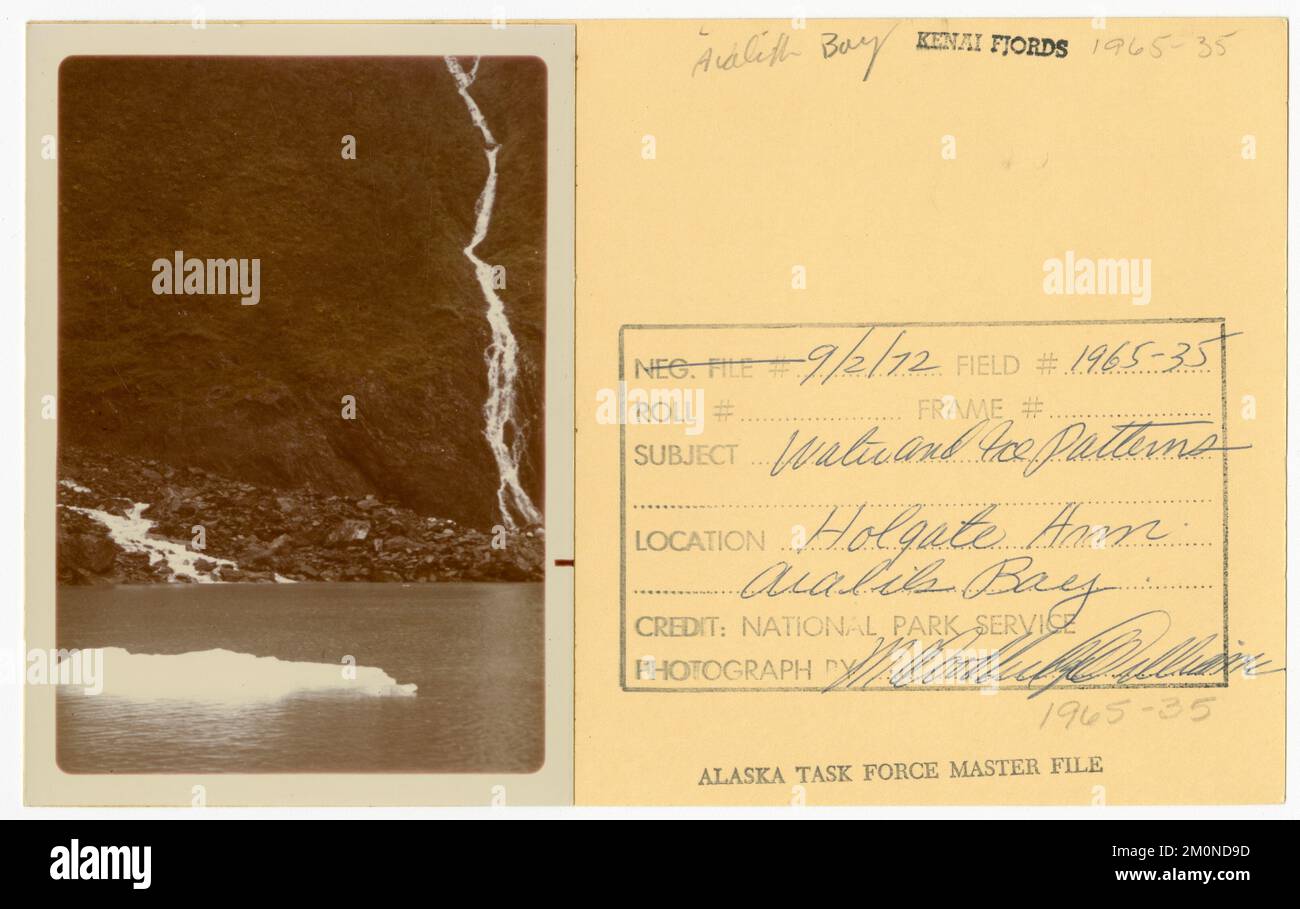 Aialik Bay KENAI FJORDS 1965-35
NEG. FILE # 9/2/72 FIELD # 1965-35
ROLL # FRAME #
SUBJECT Water and Ice Patterns
LOCATION Holgate Arm
Aialik Bay
CREDIT: NATIONAL PARK SERVICE
PHOTOGRAPH BY M Woodbridge Williams
1965-35
ALASKA TASK FORCE MASTER FILE
alamy
a
alamy
Image ID: 2M0ND9D
www.alamy.com